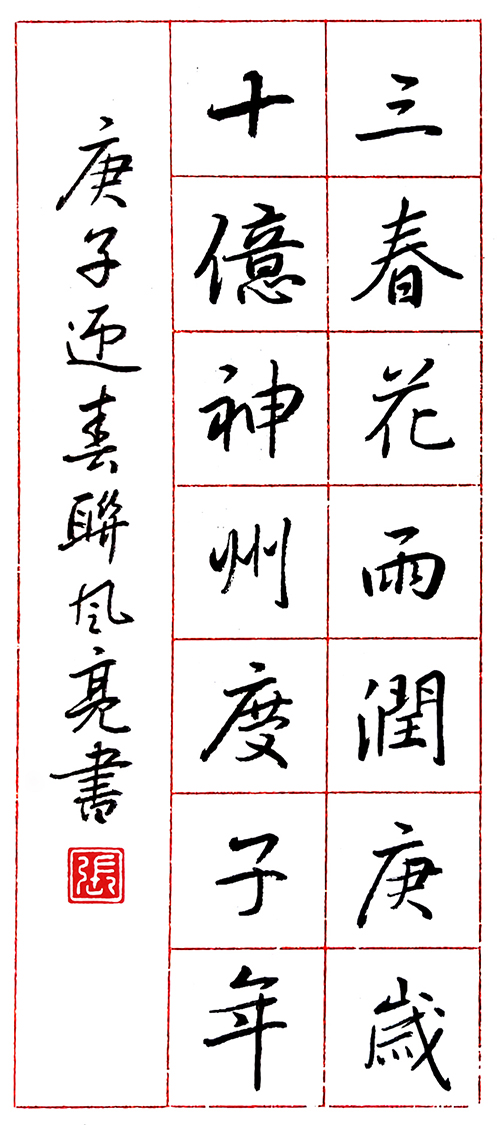 三春花雨潤庚歲
十億神州度子年
庚子迎春聯風亮書
張